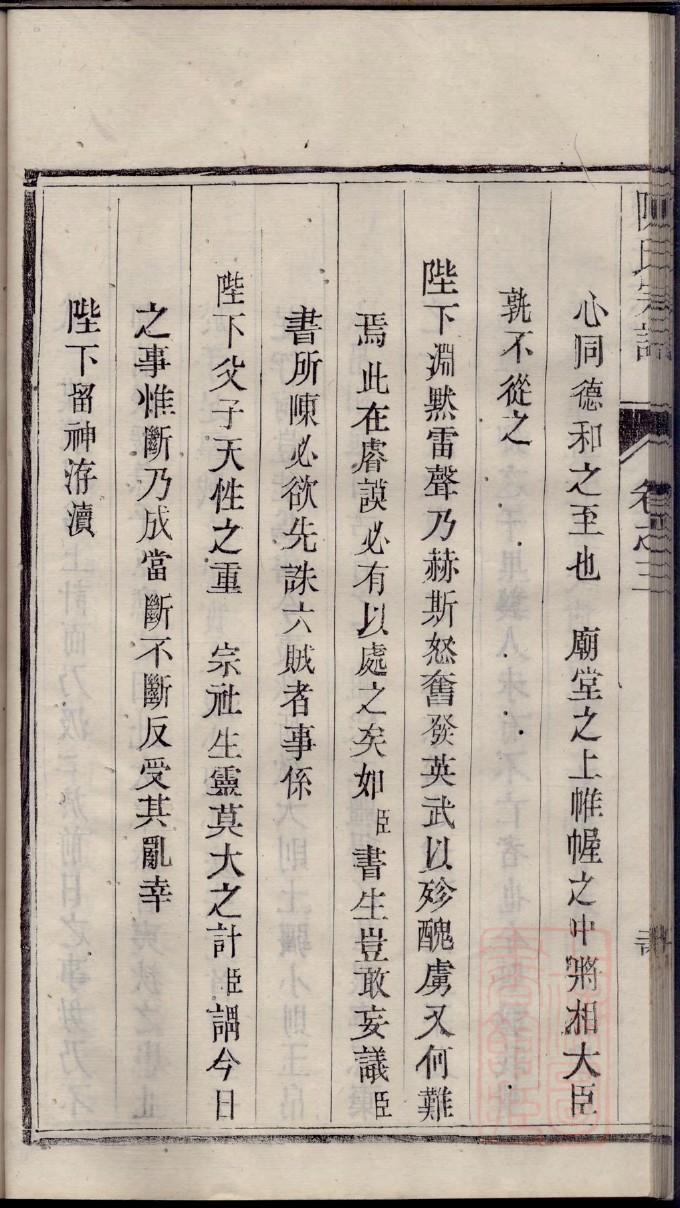 陳氏宗譜
卷之三
心同德和之至也　廟堂之上帷幄之中將相大臣
孰不從之
陛下淵默雷聲乃赫斯怒奮發英武以殄醜虜又何難
焉此在睿謨必有以處之矣如臣書生豈敢妄議臣
書所陳必欲先誅六賊者事係
陛下父子天性之重　宗社生靈莫大之計臣謂今日
之事惟斷乃成當斷不斷反受其亂幸
陛下留神洊瀆